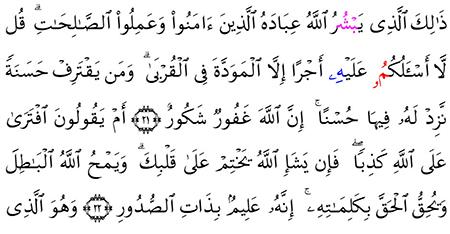 ذَٰلِكَ ٱلَّذِى يَبْشُرُ ٱللَّهُ عِبَادَهُ ٱلَّذِينَ ءَامَنُوا۟ وَعَمِلُوا۟ ٱلصَّٰلِحَٰتِ ۗ قُل
لَّا أَسْـَٔلُكُمُۥ عَلَيْهِۦ أَجْرًا إِلَّا ٱلْمَوَدَّةَ فِى ٱلْقُرْبَىٰ ۗ وَمَن يَقْتَرِفْ حَسَنَةً
نَّزِدْ لَهُۥ فِيهَا حُسْنًا ۚ إِنَّ ٱللَّهَ غَفُورٌ شَكُورٌ ﴿٢١﴾ أَمْ يَقُولُونَ ٱفْتَرَىٰ
عَلَى ٱللَّهِ كَذِبًا ۖ فَإِن يَشَإِ ٱللَّهُ يَخْتِمْ عَلَىٰ قَلْبِكَ ۗ وَيَمْحُ ٱللَّهُ ٱلْبَٰطِلَ
وَيُحِقُّ ٱلْحَقَّ بِكَلِمَٰتِهِۦ ۚ إِنَّهُۥ عَلِيمٌۢ بِذَاتِ ٱلصُّدُورِ ﴿٢٢﴾ وَهُوَ ٱلَّذِى